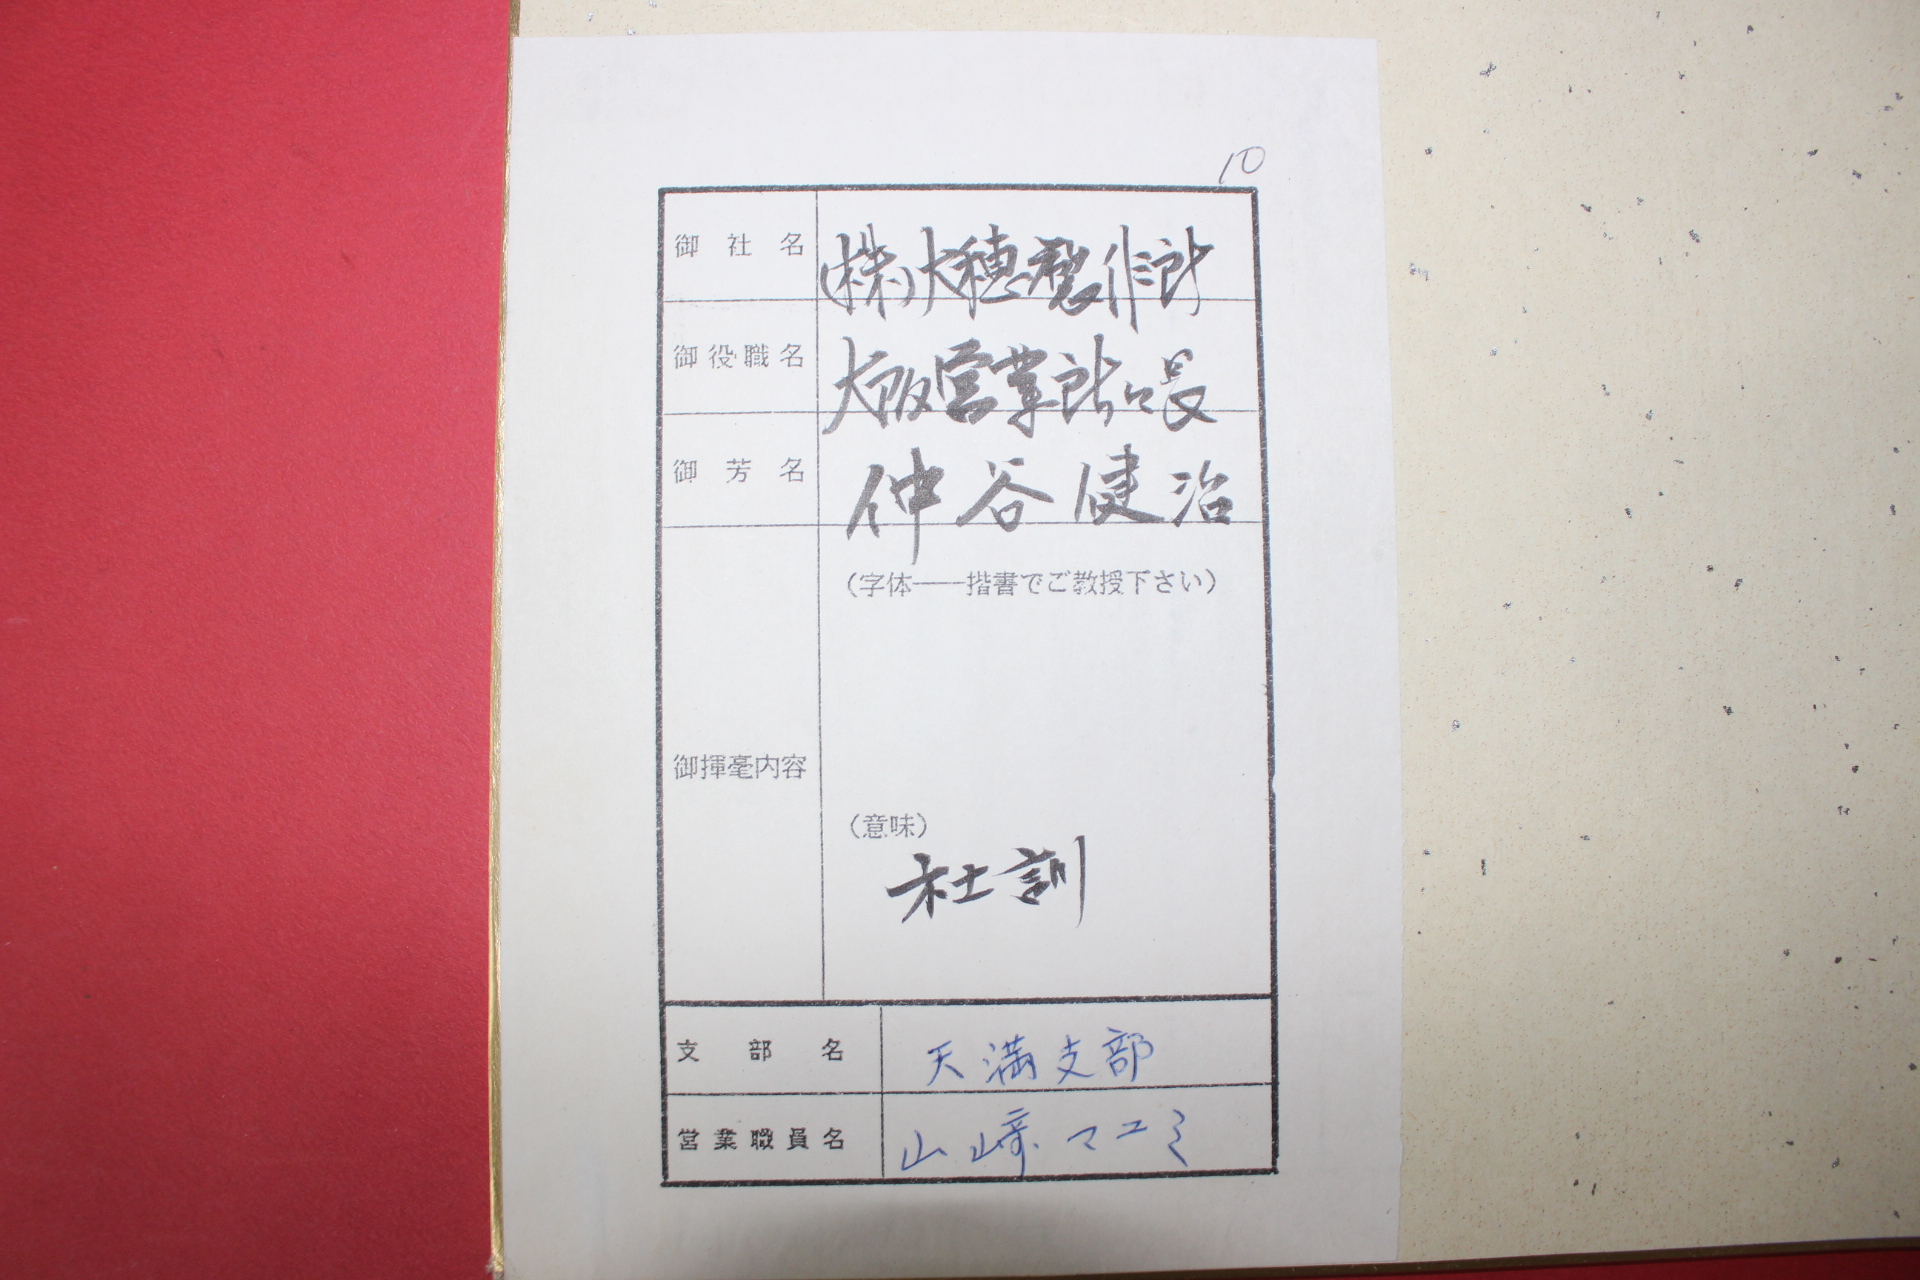 10
御社名 (株)大穂製作所
御役職名 大阪営業所々長
御芳名 仲谷健治
(字体――揩書でご教授下さい)
御揮毫内容
(意味)
社訓
支部名 天満支部
営業職員名 山﨑マユミ